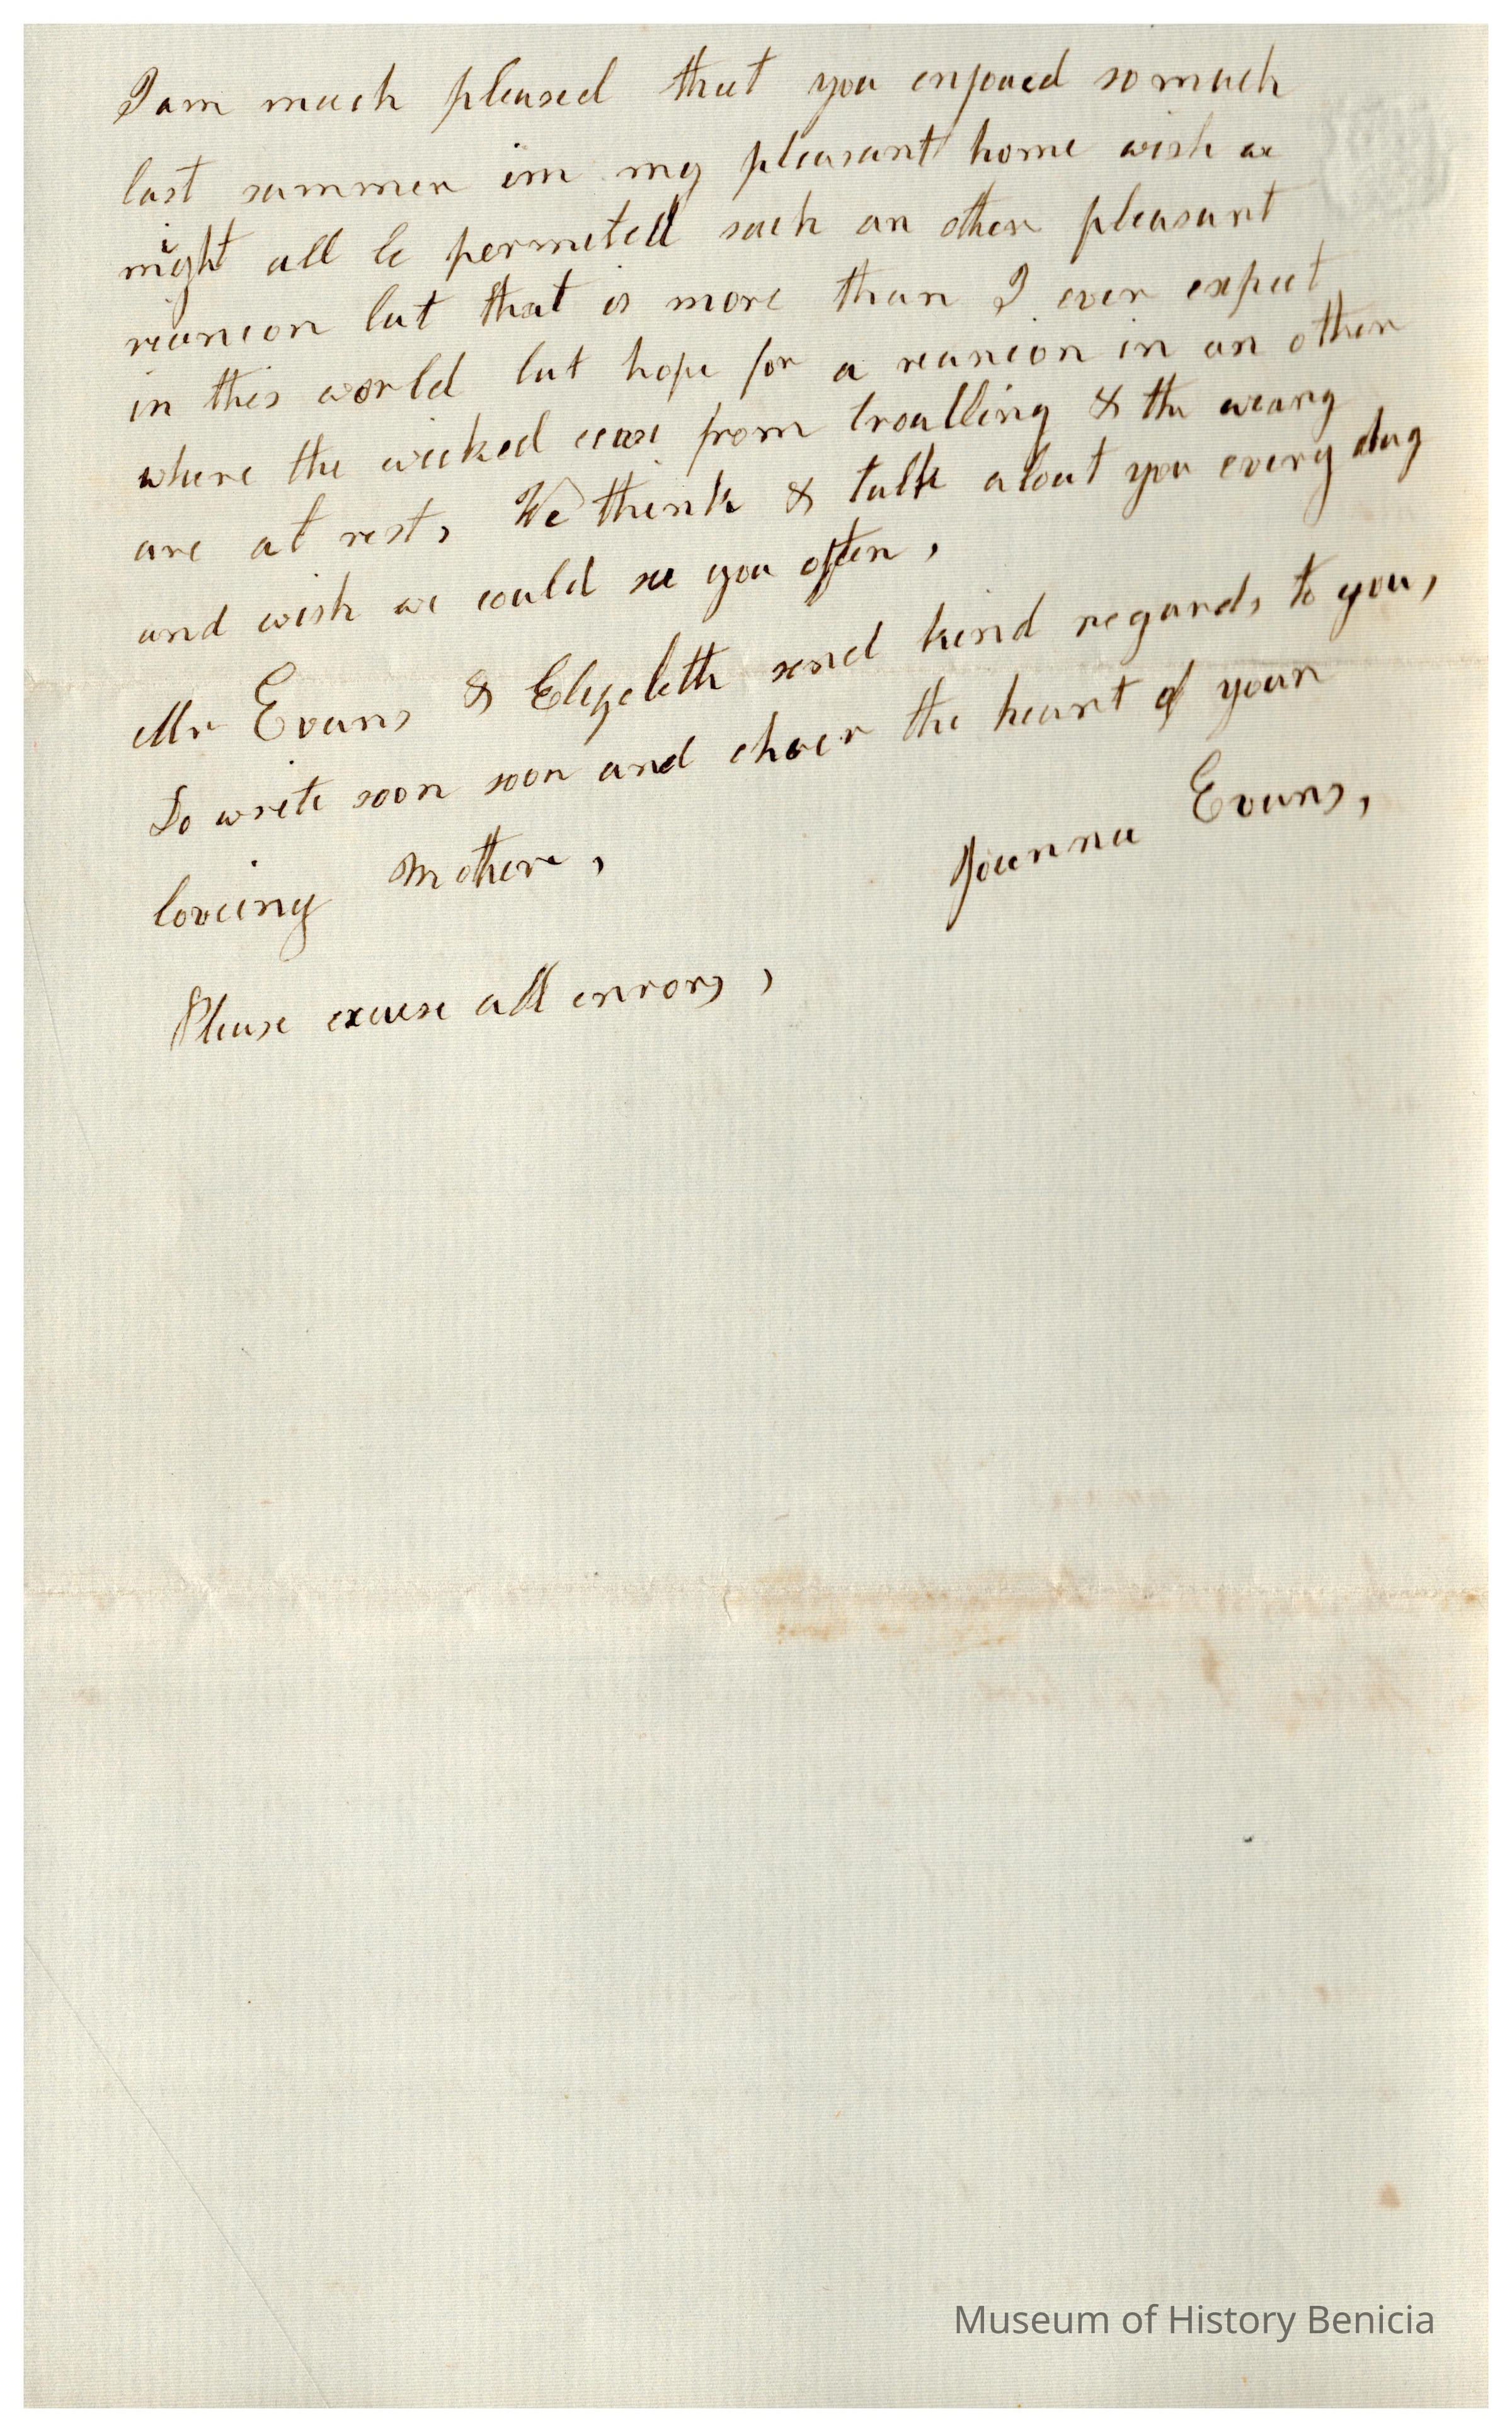 I am much pleased that you enjoued so much
last summer im my pleasant home wish we
might all be permited such an other pleasant
reunion but that is more than I ever expect
in this world but hope for a reunion in an other
where the wicked cease from troubling & the weary
are at rest, We think & talk about you every day
and wish we could see you often,
Mr Evans & Elizebeth send kind regards to you,
Do write soon soon and cheer the heart of your
loveing Mother,
Joanna Evans,
Please excuse all errors,
Museum of History Benicia